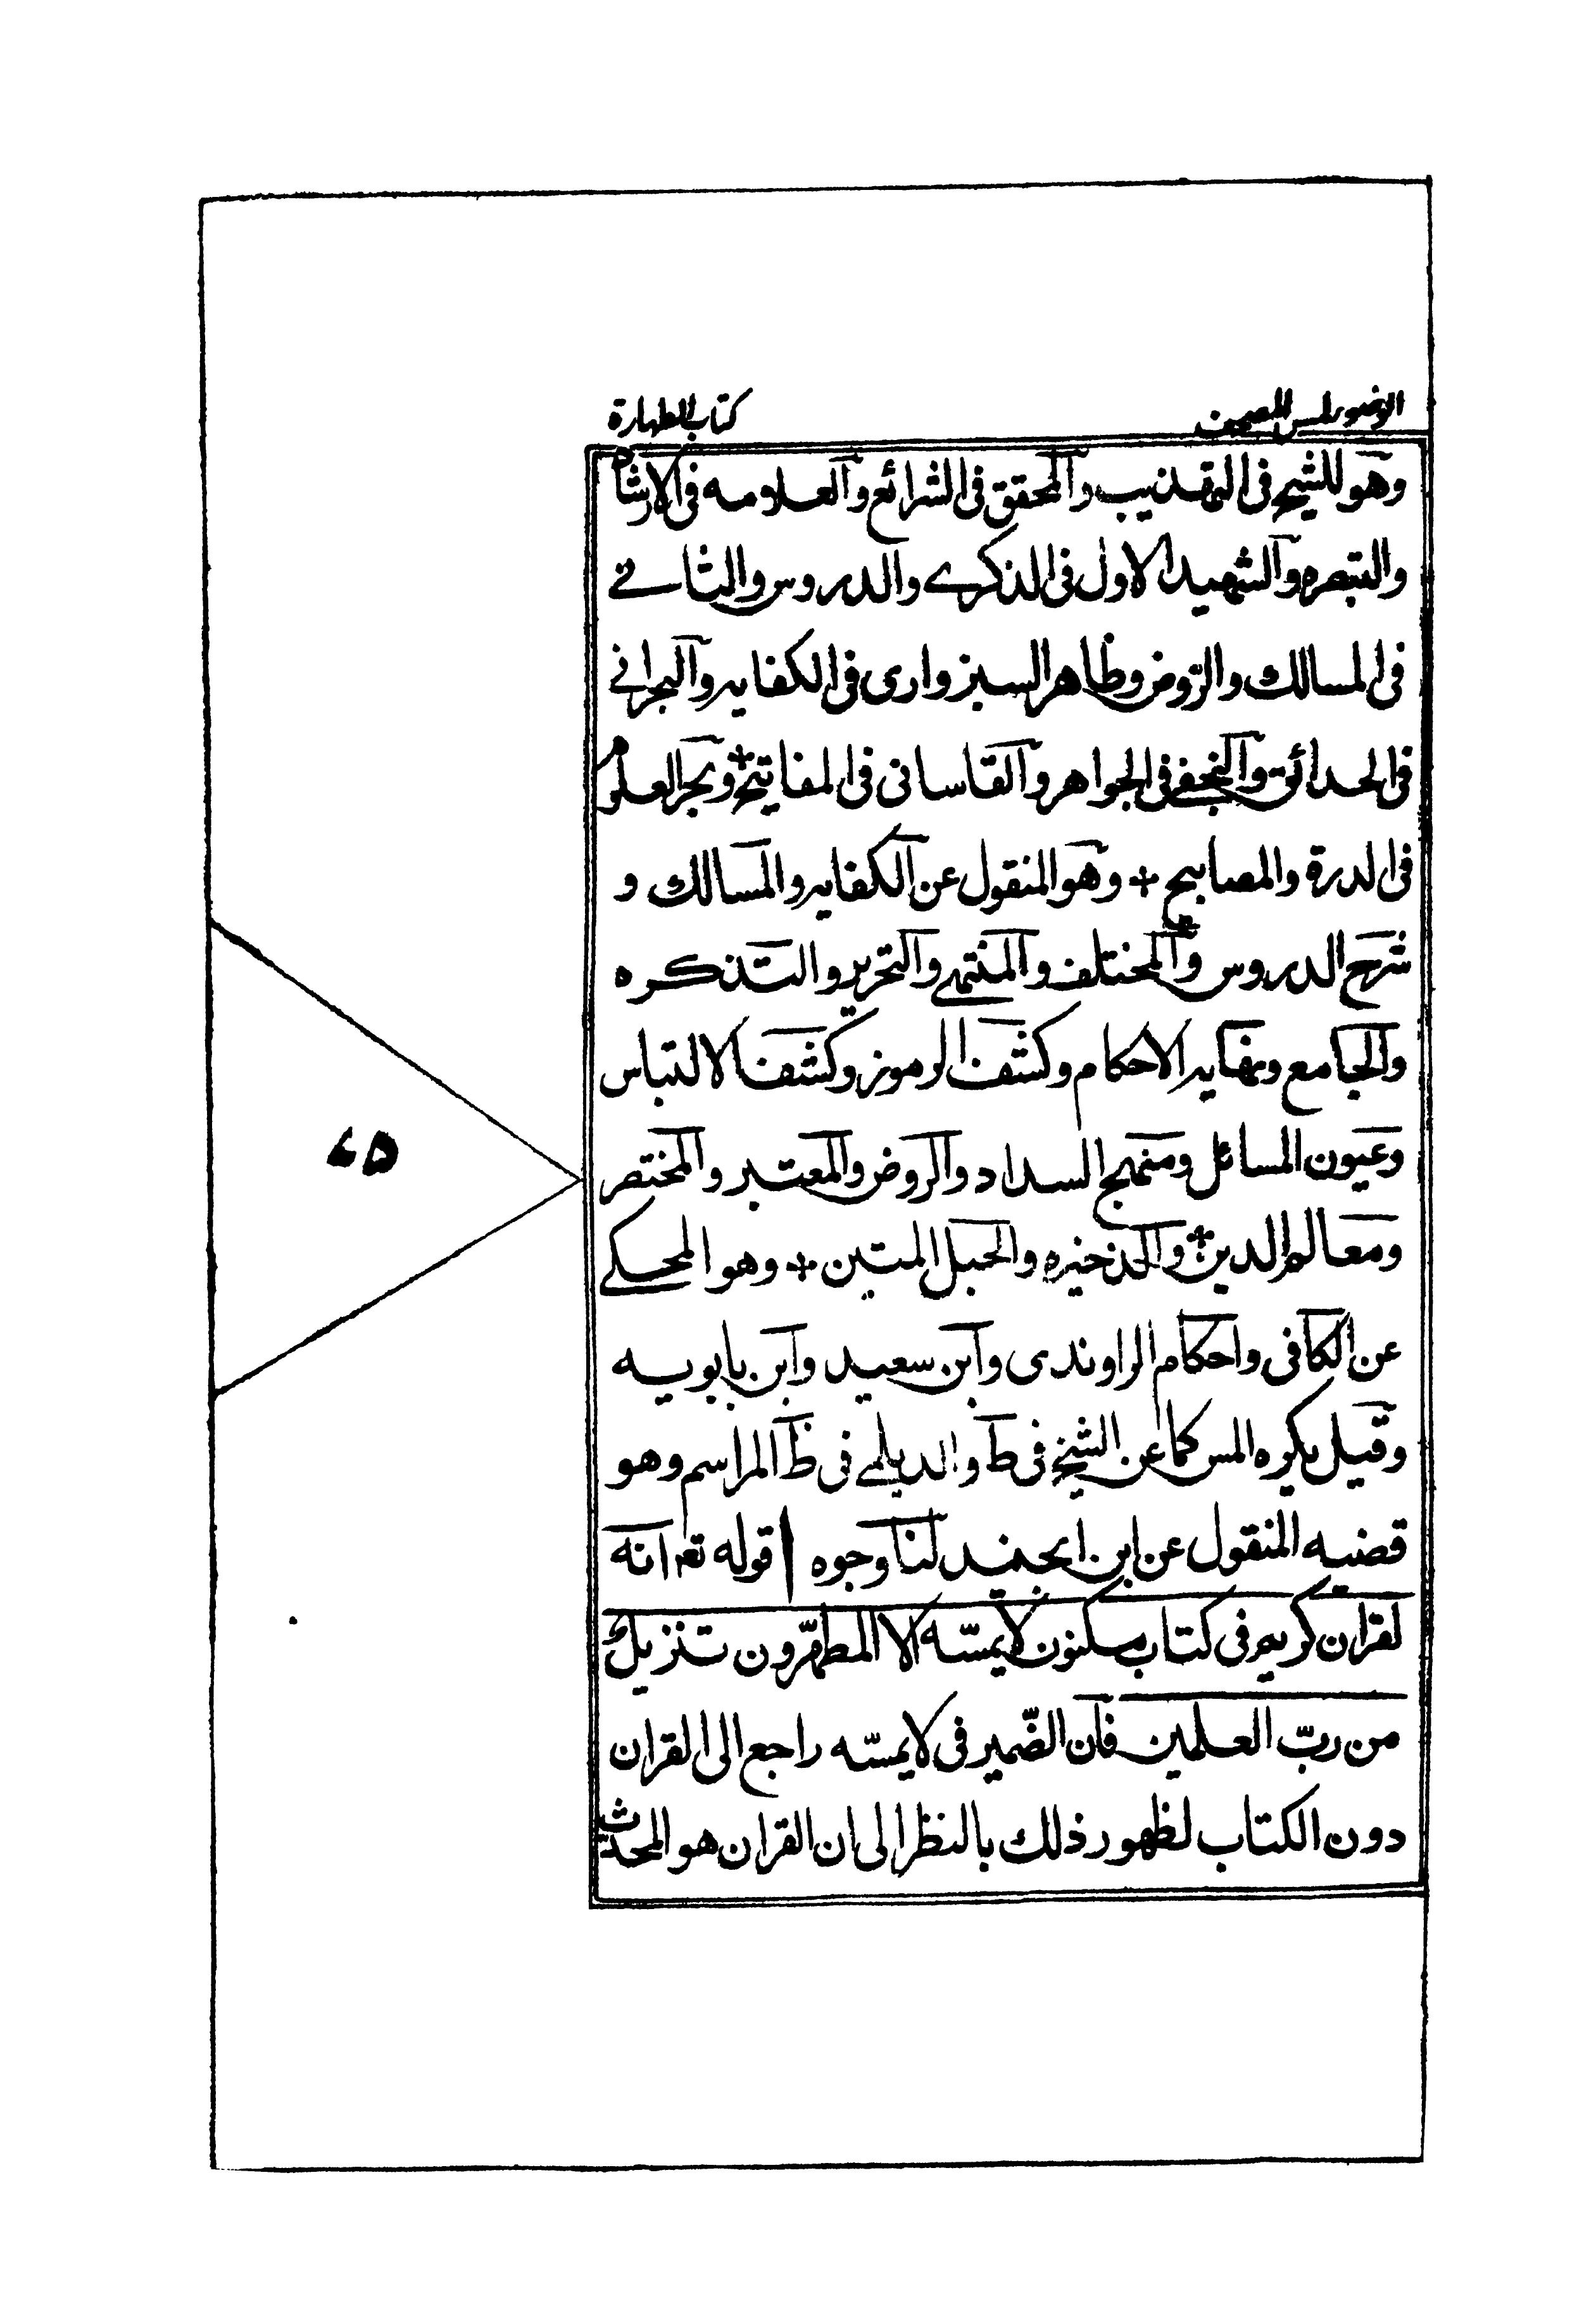 الوضوء لمس المصحف
كتاب الطهارة
وهو للشيخ فى التهذيب والمحقق فى الشرائع والعلامه فى الارشاد
والتبصره والشهيد الاول فى الذكرے والدروس والثانے
فى المسالك والروض وظاهر السبزوارى فى الكفايه والبحرانے
فى الحدائق والنجفے فى الجواهر والقاسانى فى المفاتيح وبحر العلوم
فى الدرة والمصابيح + وهو المنقول عن الكفايه والمسالك و
شرح الدروس والمختلف والمنتهے والتحرير والتذكره
والجامع ونهايه الاحكام وكشف الرموز وكشف الالتباس
وعيون المسائل ومنهج السداد والروض والمعتبر والمختصر
ومعالم الدين والذخيره والحبل المتين + وهو المحكے
عن الكافى واحكام الراوندى وابن سعيد وابن بابويه
وقيل يكره المس كما عن الشيخ فى ط والديلمے فى ظ المراسم وهو
قضيه المنقول عن ابن الجنيد لنا وجوه ا قوله تعه انه
لقران كريم فى كتاب مكنون لا يمسّه الا المطهّرون تنزيل
من ربّ العلمين فان الضّمير فى لا يمسّه راجع الى القران
دون الكتاب لظهور ذلك بالنظر الى ان القران هو المحدث